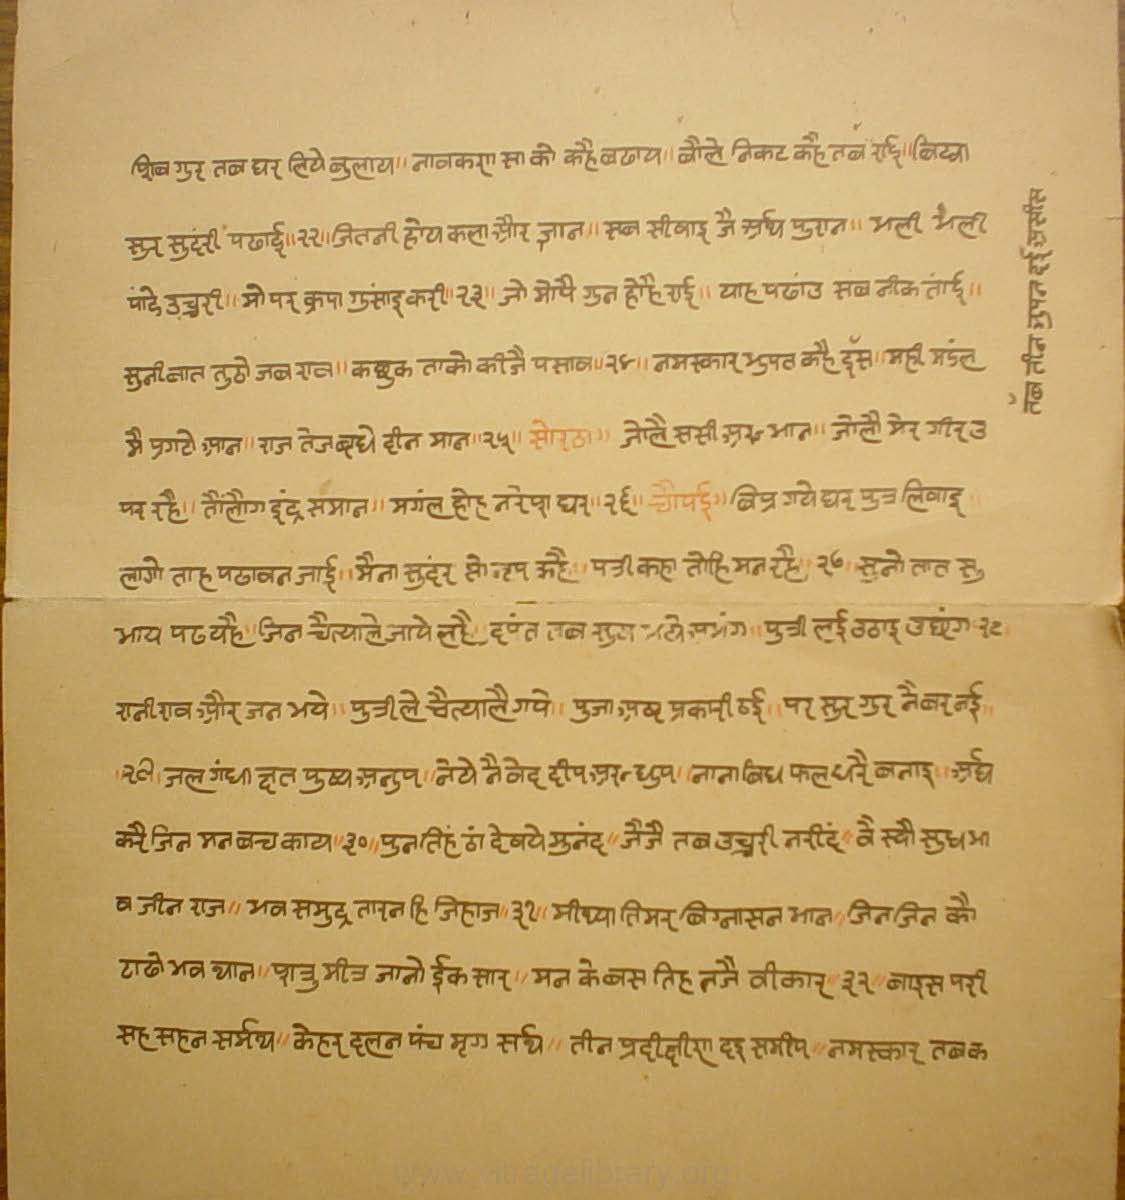 शिव गुर तब घर लिये बुलाय॥ नावकरण सा की कहै बढाय॥ बौले निकट कहै तब राई॥ बिद्या
सुर सुदंरी पढाई॥२२॥ जितनी होय कला और ज्ञान॥ सब सीखाइ जै अर्थ पुरान॥ भली भैली
पांदे उच्चरी॥ मो पर क्रपा गुसांइ करी॥२३॥ जो मोपै गुन होहै राई॥ याह पढांउ सब नीक तांई॥
सुनी बात तुठो जब राव॥ कछुक ताको कीजै पसाव॥२४॥ नमस्कार भुपत कहै दैस॥ मही मडंल
मै प्रगटो ग्यान॥ राज तेज ब्रधे दीन मान॥२५॥ सोरठा॥ जोलै ससी अरु भान॥ जोलौ मेर गीर उ
पर रहै॥ तौलौग इंद्र समान॥ मगंल होह नरेश घर॥२६॥ चौपई॥ बिप्र गये घर पुत्र लिवाइ
लागो ताह पढावन जाई॥ मैना सुदंर सो न्रप कहै॥ पत्री कहा तोहि मन रहै॥ २७॥ सुनो तात सु
भाय पढ यहै॥ जिन चैत्याले जाये लहै॥ दपंत तब सुख भये अभंग॥ पुत्री लई उठाइ उछंग २८
रानी राव और जन भये॥ पुत्री ले चैत्यालै गये॥ पुजा अष्ट प्रकारी ठई॥ पर सुर गुर नै बर नई॥
॥२९॥ जल गंधा न्नत पुष्य अनुप॥ नेये नै वेद दीप अरु धुप॥ नाना बिध फल धरै बनाइ॥ अर्घ
करै जिन मन बच काय॥३०॥ पुन तिहं ठां देषये मुनंद॥ जैजै तब उच्चरी नरीदं॥ वै स्यौ सुध भा
व जीन राज॥ भव समुद्र तारन हि जिहाज॥३१॥ मीथ्या तिमर बिग्नासन भान॥ जिन जिन कौ
टाढो भव थान॥ शत्रु मीत्र जानो ईक सार॥ मन के बस तिह तजै वीकार॥३२॥ बाइस परी
सह सहन सर्मथ॥ केहर दलन पंच मृग सर्थ॥ तीन प्रदीक्षीणा दइ समीप॥ नमस्कार तब क
तब तीन भुपत दई असीस